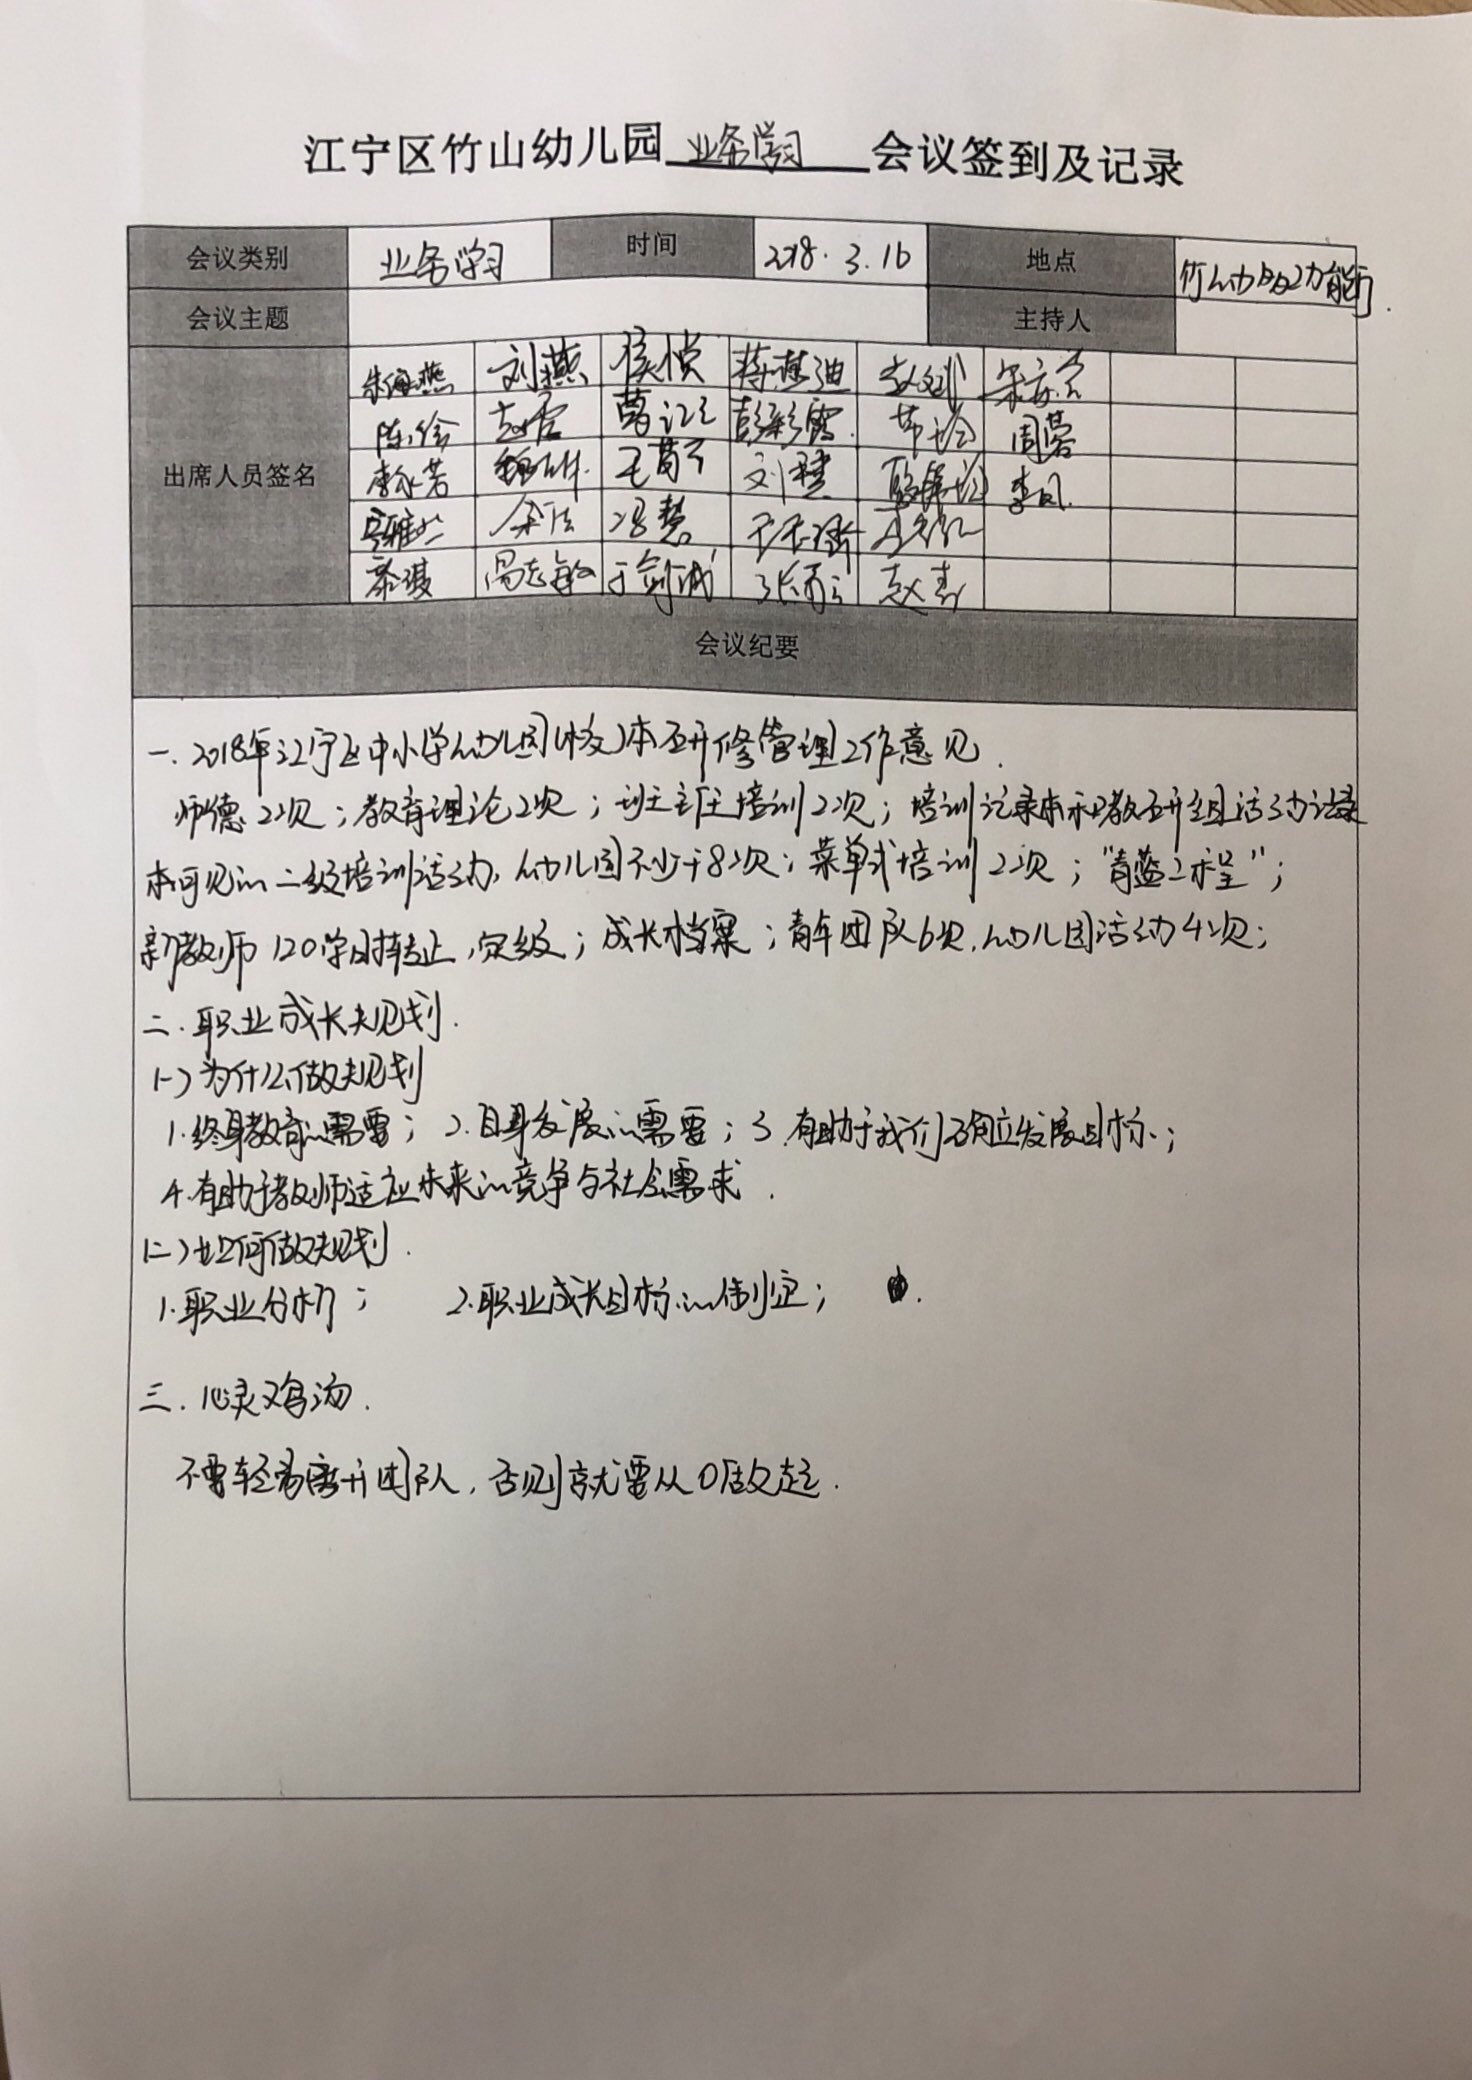 江宁区竹山幼儿园 业务学习 会议签到及记录
会议类别 业务学习 时间 2018.3.16 地点 竹幼多功能厅.
会议主题 主持人
出席人员签名
刘燕 侯悦
陈 彭彩霞 周蓉
李永芳 刘 李凤
余 冯慧
蔡 于剑诚 赵
会议纪要
一.2018年江宁区中小学幼儿园(校)本研修管理工作意见.
师德2次;教育理论2次;班主任培训2次;培训记录本和教研组活动记录
本可见的二级培训活动,幼儿园不少于8次;菜单式培训2次;“青蓝工程”;
新教师120学时转正,定级;成长档案;青年团队6次,幼儿园活动4次;
二.职业成长规划.
(一)为什么做规划
1.终身教育的需要;2.自身发展的需要;3.有助于我们确立发展目标.;
4.有助于教师适应未来的竞争与社会需求.
(二)如何做规划.
1.职业分析; 2.职业成长目标的制定;
三.心灵鸡汤.
不要轻易离开团队,否则就要从0做起.